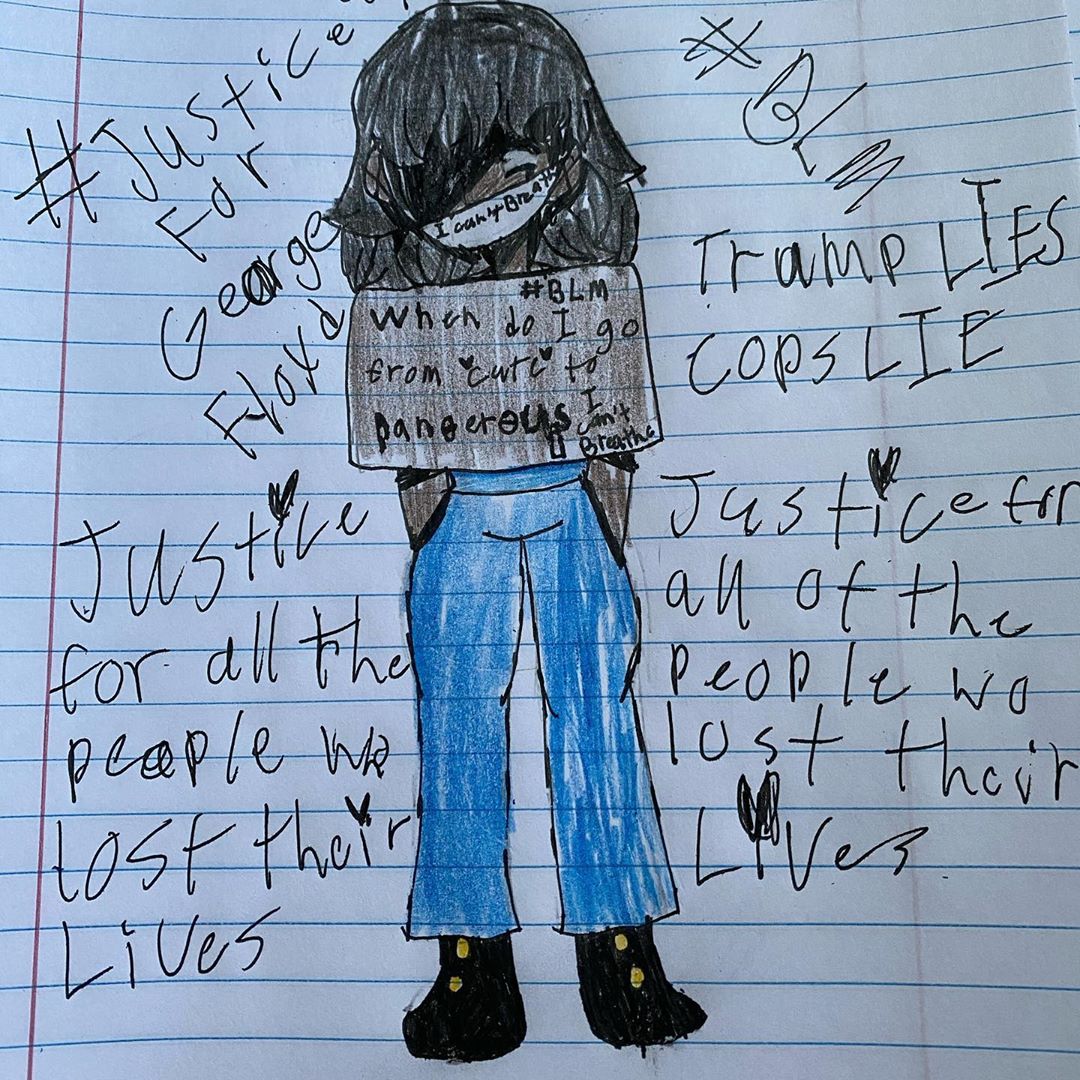 #Justice
For
George
Floyd
#BLM
I can't Breath
#BLM
When do I go
from "cute" to
Dangerous
I
can't
Breathe
Tramp LIES
COPS LIE
Justice
for all the
people wo
lost their
Lives
Justice for
all of the
People wo
lost their
Lives